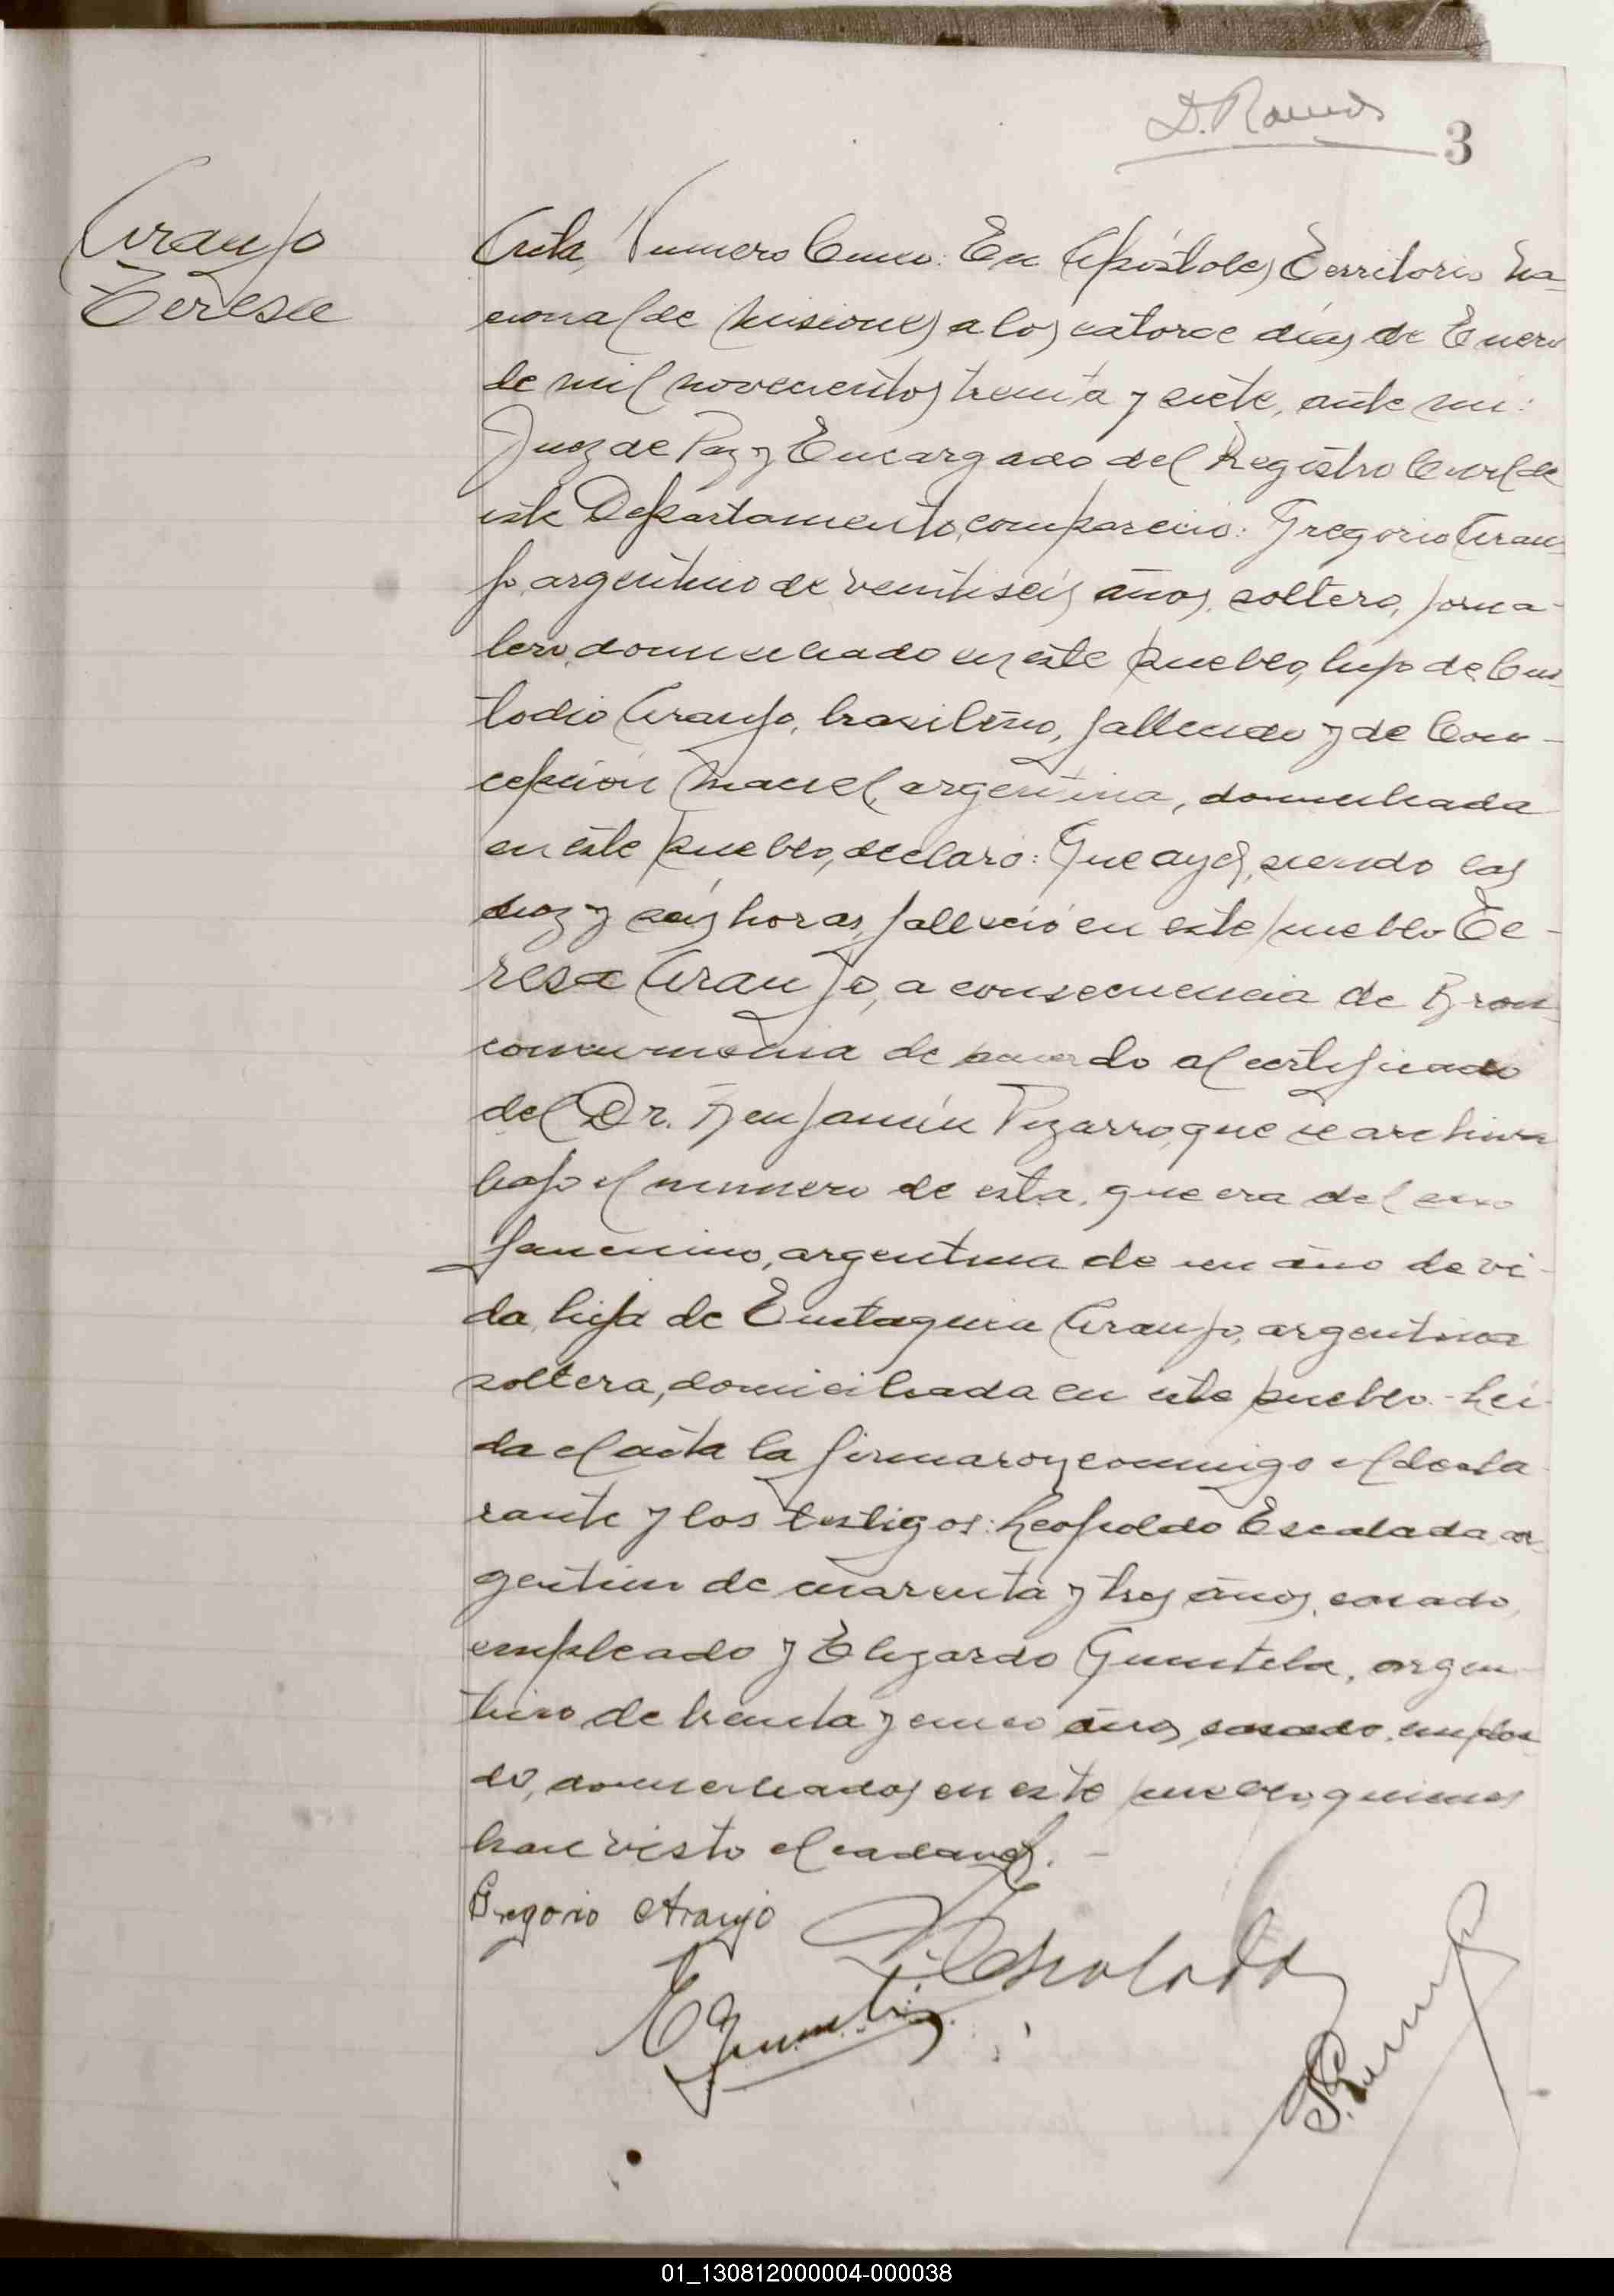 D. Ramos
3
Araujo
Teresa
Acta Numero Cinco: En Apóstoles, Territorio Na-
cional de Misiones, a los catorce días de Enero
de mil novecientos treinta y siete, ante mi:
Juez de Paz y Encargado del Registro Civil de
este Departamento, compareció: Gregorio Arau-
jo, argentino de veintiseis años, soltero, jorna-
lero, domiciliado en este pueblo, hijo de Cus-
todio Araujo, brasileño, fallecido y de Con-
cepción Maciel, argentina, domiciliada
en este pueblo, declaró: Que ayer, siendo las
diez y seis horas, falleció en este pueblo Te-
resa Araujo, a consecuencia de Bron-
coneumonia de acuerdo al certificado
del Dr. Benjamín Pizarro, que se archiva
bajo el numero de esta, que era del sexo
femenino, argentina de un año de vi-
da, hija de Eustaquia Araujo, argentina
soltera, domiciliada en este pueblo.- Leí-
da el acta la firmaron conmigo el decla-
rante y los testigos: Leopoldo Escalada, ar-
gentino de cuarenta y tres años, casado,
empleado y Elizardo Quintela, argen-
tino de treinta y cinco años, casado, emplea-
do, domiciliados en este pueblo, quienes
han visto el cadaver. -
Gregorio Araujo
L. Escalada
E Quintela
01_130812000004-000038